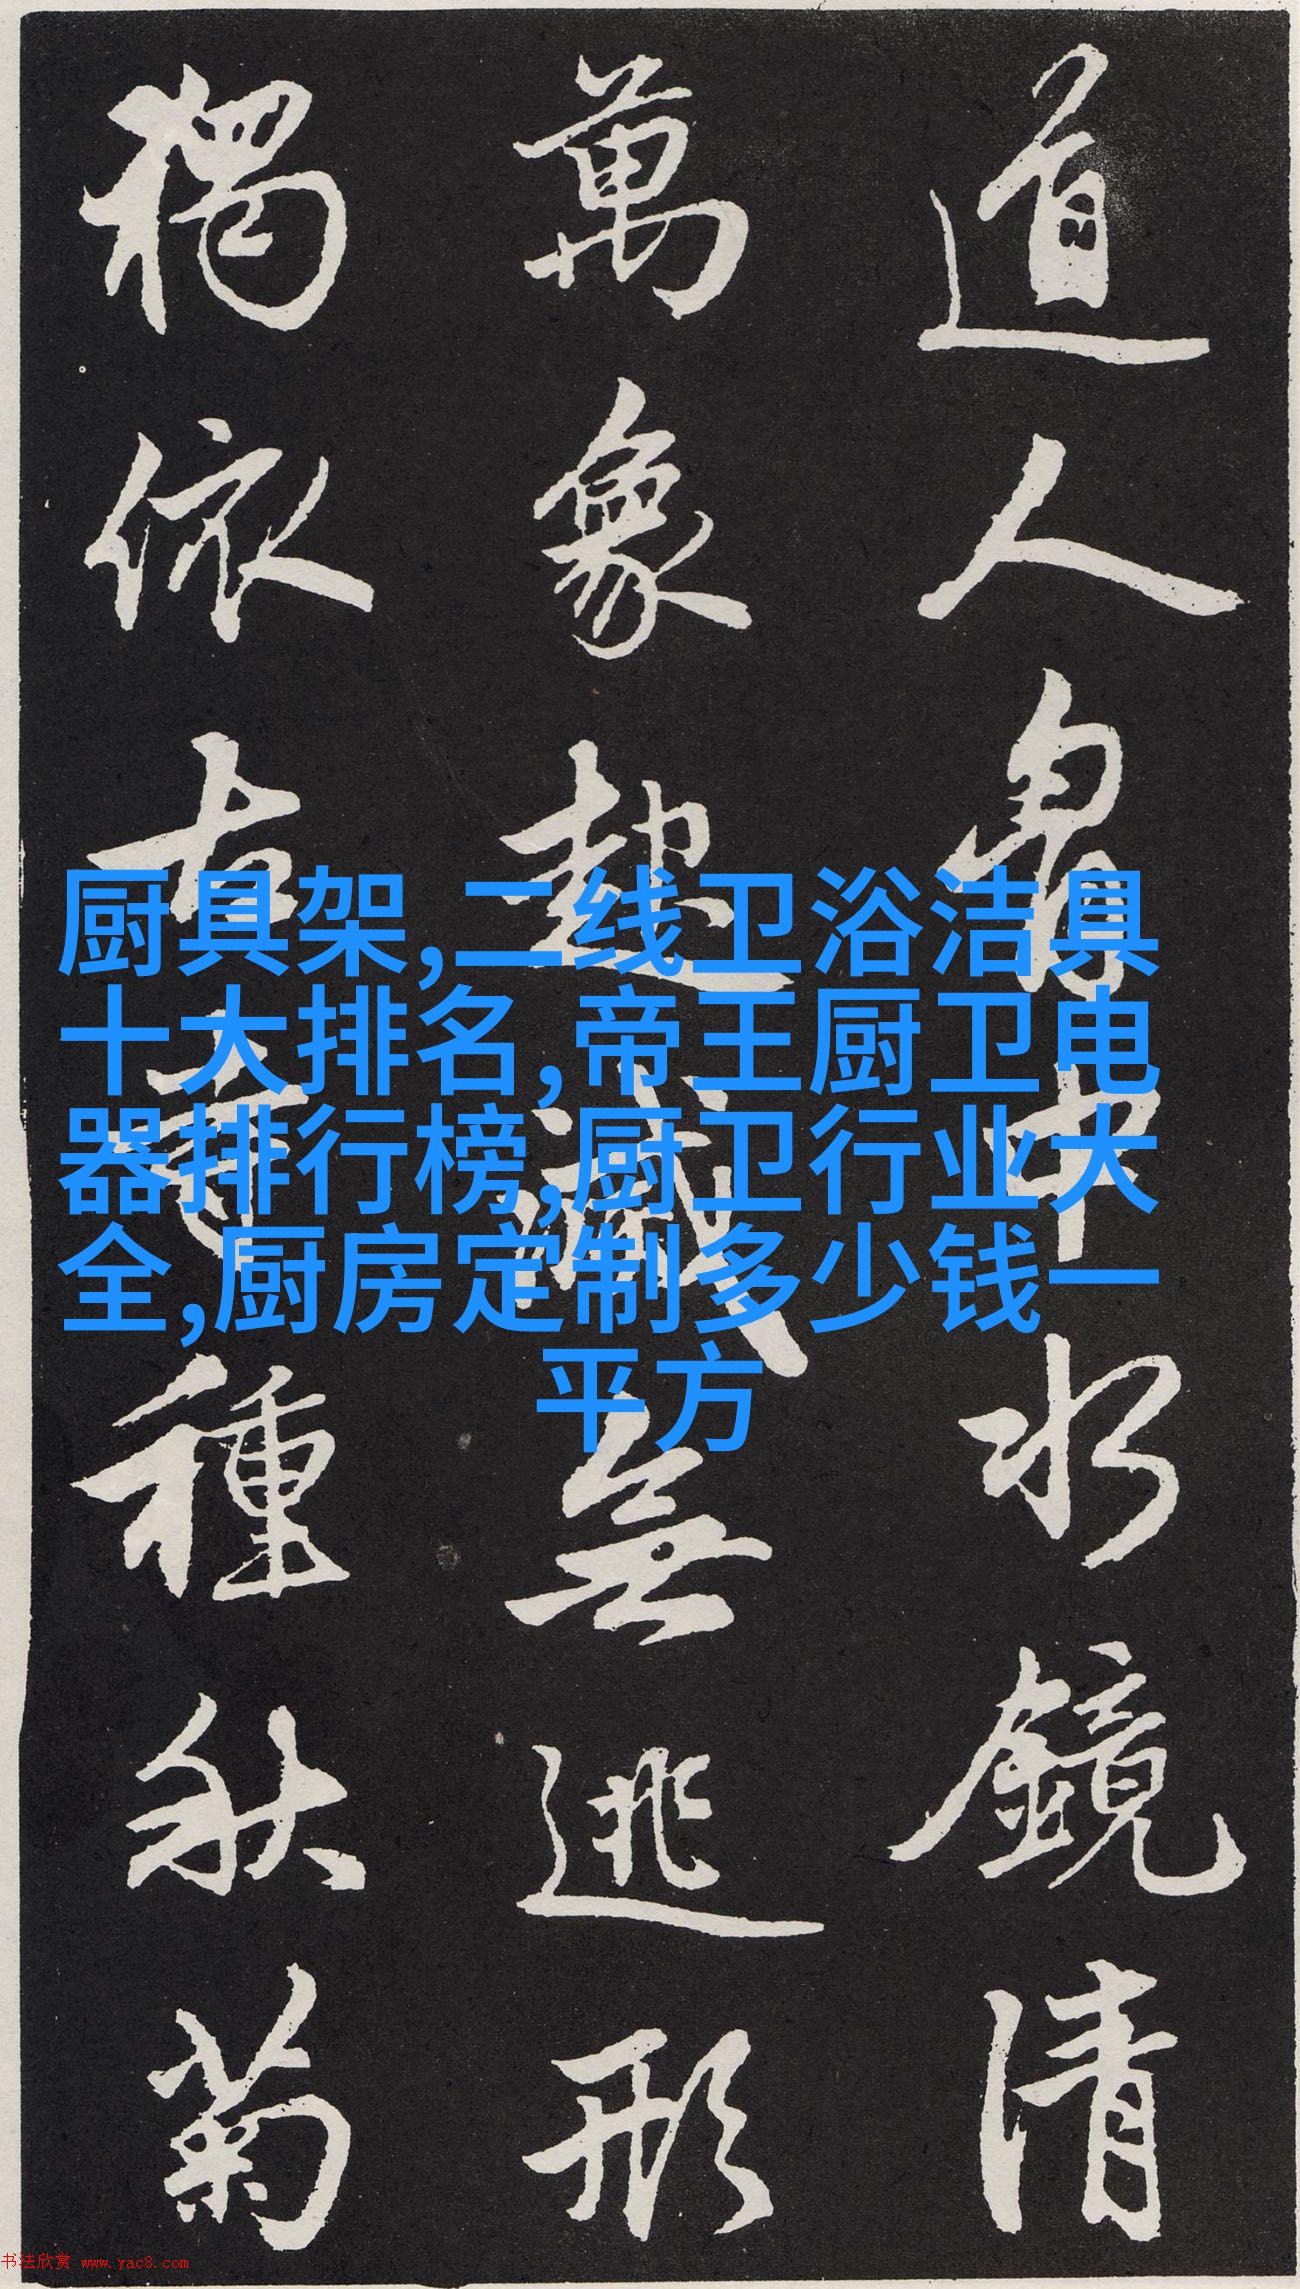 道人胷中水鏡清
萬象起滅無逃形
獨依古寺種秋菊
厨具架,二线卫浴洁具
十大排名,帝王厨卫电
器排行榜,厨卫行业大
全,厨房定制多少钱一
平方
书法欣赏 www.yac8.com